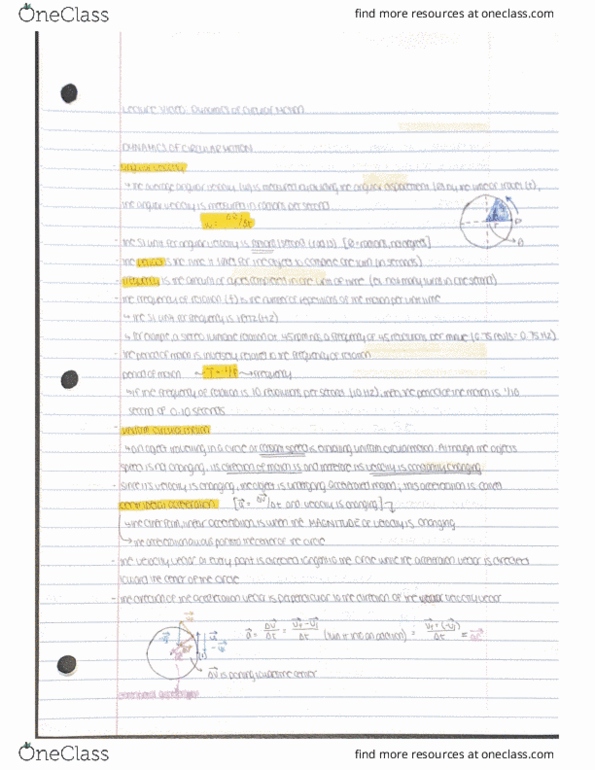 OneClass
find more resources at oneclass.com
DYNAMICS OF CIRCULAR MOTION
angular velocity
↳ the average angular velocity is measured by dividing the angular displacement by the time of travel (t),
the angular velocity is measured in radians per second
- the SI unit for angular velocity is radians/second (rad/s)
- the period is the time it takes for the object to complete one turn (in seconds)
frequency is the amount of cycles completed in one unit of time
- the frequency of rotation (f) is the number of repetitions of the motion per unit time
↳ the SI unit for frequency is Hertz (Hz)
↳ for example, a steady rotation of 45 rpm has a frequency of 45 revolutions per minute (0.75 rev/s = 0.75 Hz)
- the period of motion is inversely related to the frequency of rotation
period of motion T = 1/f → frequency
↳ if the frequency of rotation is 10 revolutions per second (10 Hz), then the period of the motion is 1/10
second or 0.10 seconds
- uniform circular motion
↳ an object travelling in a circle at constant speed is exhibiting uniform circular motion. Although the objects
speed is not changing, its direction of motion is and therefore its velocity is constantly changing
- since its velocity is changing, the object is undergoing accelerated motion, this acceleration is called
centripetal acceleration [a = Δv/Δt and velocity is changing]
linear acceleration is when the MAGNITUDE of velocity is changing
↳ the acceleration always points to the center of the circle
- the velocity vector at every point is directed tangent to the circle while the acceleration vector is directed
toward the center of the circle
- the direction of the acceleration vector is perpendicular to the direction of the velocity vector
Δv is pointing towards the center
OneClass
find more resources at oneclass.com